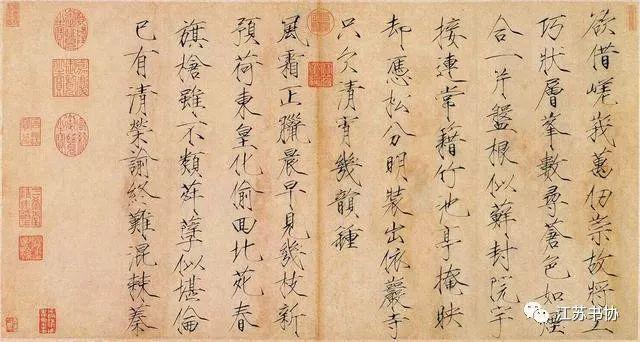 欲借嵯峩萬仞崇故將工
巧狀層峯數尋蒼色如煙
合一片盤根似蘚封院宇
接連常藉竹池亭掩映
却應松分明裝出依巖寺
只欠清宵幾韻鍾
風霜正臘晨早見幾枝新
預荷東皇化偷回北苑春
旗槍雖不類荈孽似堪倫
已有清榮諭終難混棘蓁
江苏书协